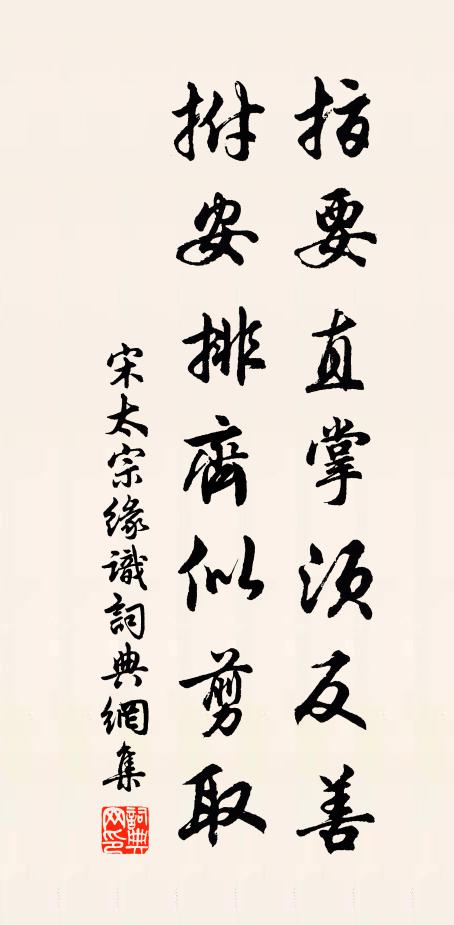 指要直掌須反善
拊安排齊似剪取
宋太宗緣識詞典網集
詞典网印